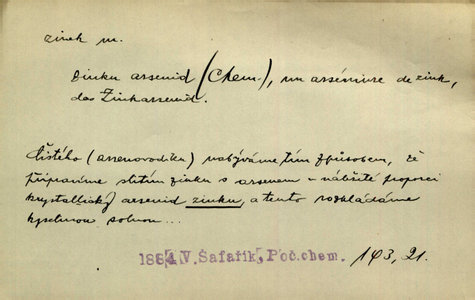 zinek m.
Zinku arsenid (Chem.), un arséniure de zink,
das Zinkarsenid.
Čistého (arsenovodíku) nabýváme tím způsobem, že
připravíme slitím zinku s arsenem v náležité proporci
krystallický arsenid zinku, a tento rozkládáme
kyselinou solnou...
1884, V. Šafařík, Poč. chem. 143, 21.